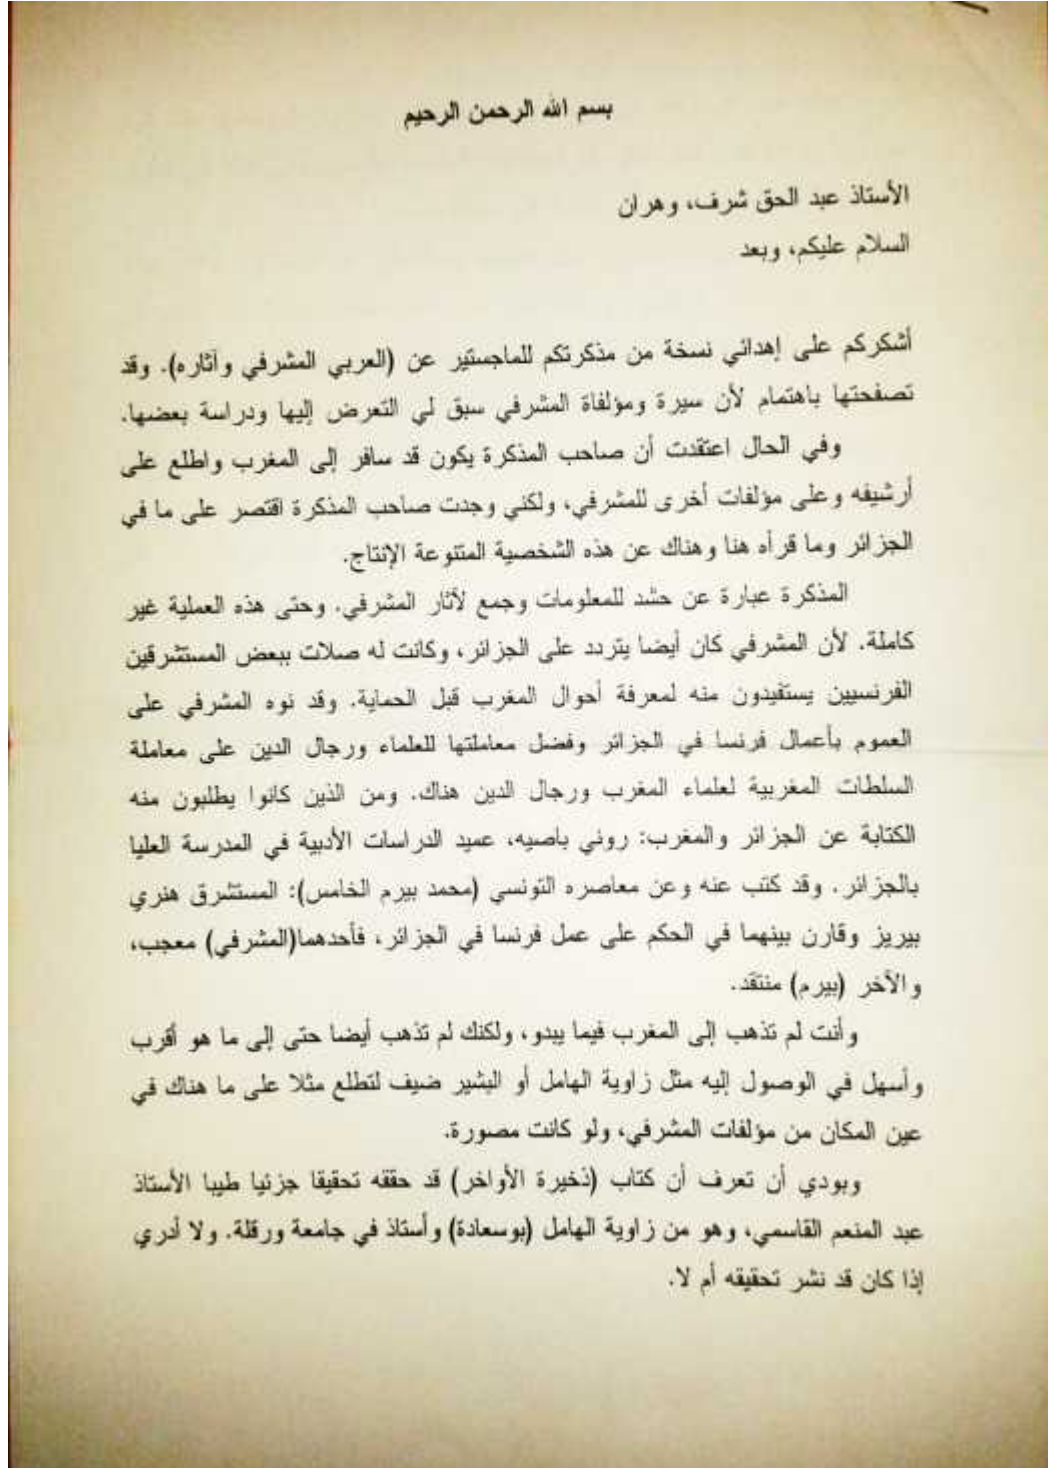 بسم الله الرحمن الرحيم
الأستاذ عبد الحق شرف، وهران
السلام عليكم، وبعد
أشكركم على إهدائي نسخة من مذكرتكم للماجستير عن (العربي المشرفي وآثاره). وقد
تصفحتها باهتمام لأن سيرة ومؤلفاة المشرفي سبق لي التعرض إليها ودراسة بعضها.
وفي الحال اعتقدت أن صاحب المذكرة يكون قد سافر إلى المغرب واطلع على
أرشيفه وعلى مؤلفات أخرى للمشرفي، ولكني وجدت صاحب المذكرة اقتصر على ما في
الجزائر وما قرأه هنا وهناك عن هذه الشخصية المتنوعة الإنتاج.
المذكرة عبارة عن حشد للمعلومات وجمع لآثار المشرفي. وحتى هذه العملية غير
كاملة. لأن المشرفي كان أيضا يتردد على الجزائر، وكانت له صلات ببعض المستشرقين
الفرنسيين يستفيدون منه لمعرفة أحوال المغرب قبل الحماية. وقد نوه المشرفي على
العموم بأعمال فرنسا في الجزائر وفضل معاملتها للعلماء ورجال الدين على معاملة
السلطات المغربية لعلماء المغرب ورجال الدين هناك. ومن الذين كانوا يطلبون منه
الكتابة عن الجزائر والمغرب: روني باصيه، عميد الدراسات الأدبية في المدرسة العليا
بالجزائر. وقد كتب عنه وعن معاصره التونسي (محمد بيرم الخامس): المستشرق هنري
بيريز وقارن بينهما في الحكم على عمل فرنسا في الجزائر، فأحدهما(المشرفي) معجب،
والآخر (بيرم) منتقد.
وأنت لم تذهب إلى المغرب فيما يبدو، ولكنك لم تذهب أيضا حتى إلى ما هو أقرب
وأسهل في الوصول إليه مثل زاوية الهامل أو البشير ضيف لتطلع مثلا على ما هناك في
عين المكان من مؤلفات المشرفي، ولو كانت مصورة.
وبودي أن تعرف أن كتاب (ذخيرة الأواخر) قد حققه تحقيقا جزئيا طيبا الأستاذ
عبد المنعم القاسمي، وهو من زاوية الهامل (بوسعادة) وأستاذ في جامعة ورقلة. ولا أدري
إذا كان قد نشر تحقيقه أم لا.